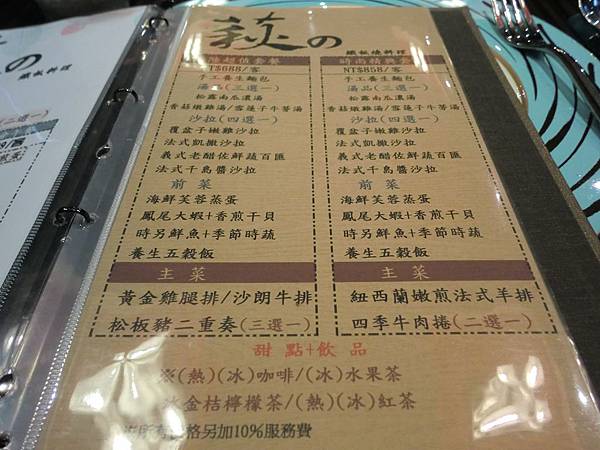 萩の
鐵板燒料理
超值套餐
NT$688/客
手工養生麵包
湯品(三選一)
松露南瓜濃湯
香菇燉雞湯/雪蓮子牛蒡湯
沙拉(四選一)
覆盆子嫩雞沙拉
法式凱撒沙拉
義式老醋佐鮮蔬百匯
法式千島醬沙拉
前菜
海鮮芙蓉蒸蛋
鳳尾大蝦+香煎干貝
時另鮮魚+季節時蔬
養生五穀飯
主菜
黃金雞腿排/沙朗牛排
松板豬二重奏(三選一)
時尚精典套餐
NT$858/客
手工養生麵包
湯品(三選一)
松露南瓜濃湯
香菇燉雞湯/雪蓮子牛蒡湯
沙拉(四選一)
覆盆子嫩雞沙拉
法式凱撒沙拉
義式老醋佐鮮蔬百匯
法式千島醬沙拉
前菜
海鮮芙蓉蒸蛋
鳳尾大蝦+香煎干貝
時另鮮魚+季節時蔬
養生五穀飯
主菜
紐西蘭嫩煎法式羊排
四季牛肉捲(二選一)
甜點+飲品
※(熱)(冰)咖啡/(冰)水果茶
金桔檸檬茶/(熱)(冰)紅茶
※所有價格另加10%服務費
の
鐵板料理